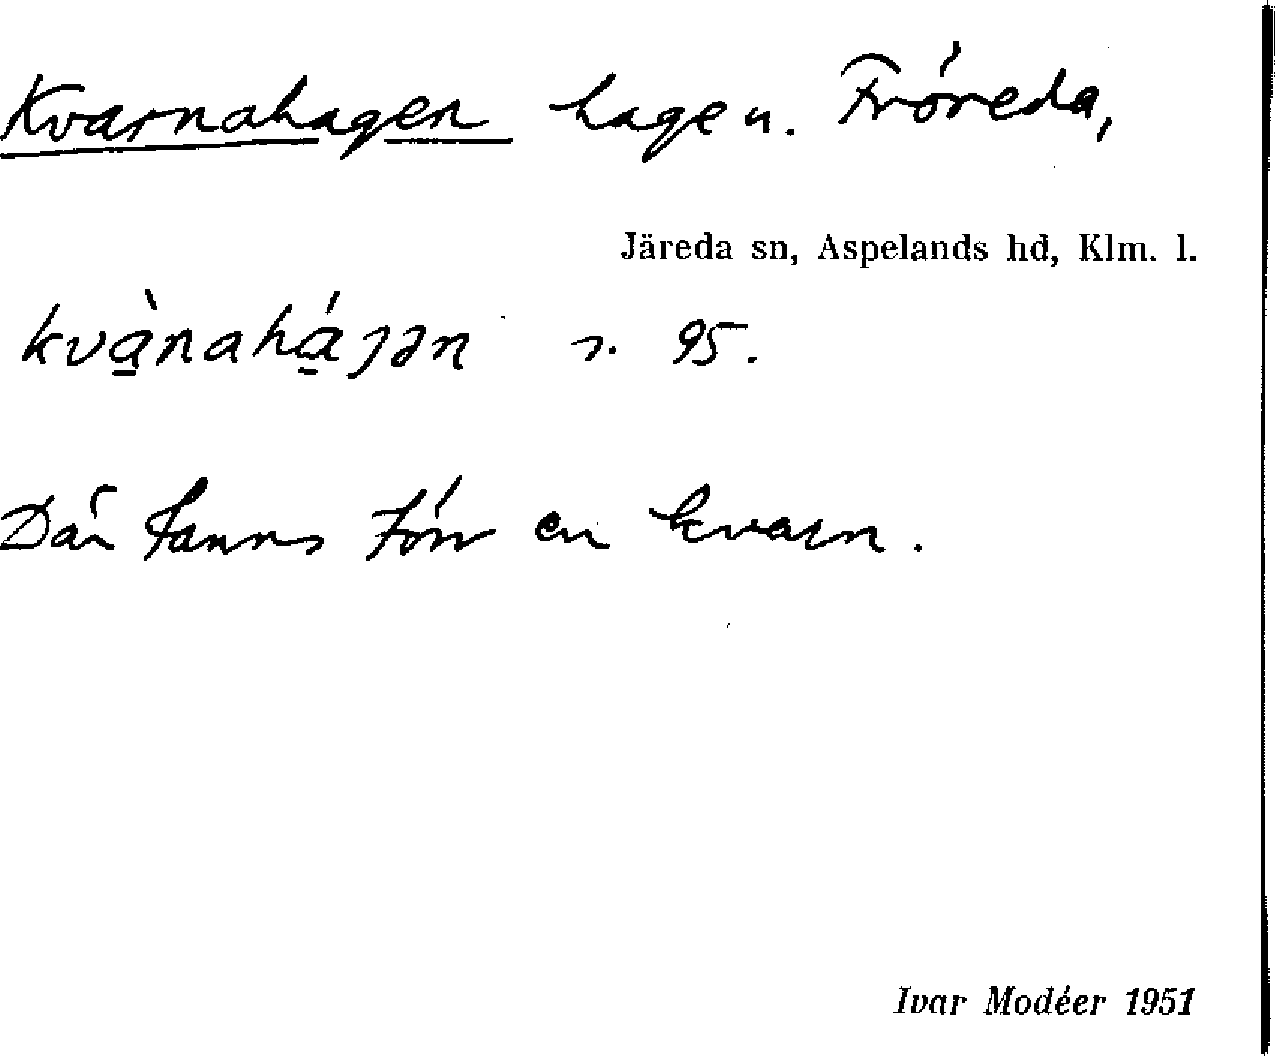 Kvarnahagen hage u. Fröreda,
Järeda sn, Aspelands hd, Klm. l.
kvànahájən s. 95.
Där fanns förr en kvarn.
Ivar Modéer 1951